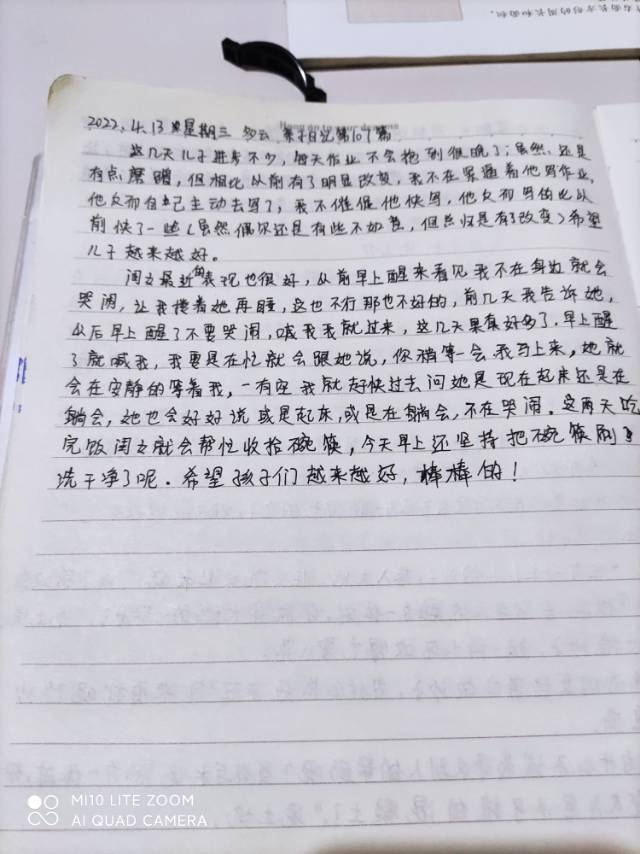 的周长和面积。
2022.4.13 星期三 多云 亲子日记第107篇
这几天儿子进步不少,每天作业不会拖到很晚了;虽然还是
有点磨蹭,但相比从前有了明显改变,我不在紧逼着他写作业,
他反而自己主动去写了,我不催促他快写,他反而写的比从
前快了一些(虽然偶尔还是有些不如意,但总归是有改变)希望
儿子越来越好。
闺女最近的表现也很好,从前早上醒来看见我不在身边就会
哭闹,让我搂着她再睡,这也不行那也不好的,前几天我告诉她,
以后早上醒了不要哭闹,喊我我就过来,这几天果真好多了,早上醒
了就喊我,我要是在忙就会跟她说,你稍等一会,我马上来,她就
会在安静的等着我,一有空我就好快过去问她是现在起床还是在
躺会,她也会好好说或是起床,或是在躺会,不在哭闹。这两天吃
完饭闺女就会帮忙收拾碗筷,今天早上还坚持把碗筷刷了
洗干净了呢。希望孩子们越来越好,棒棒的!
MI 10 LITE ZOOM
AI QUAD CAMERA